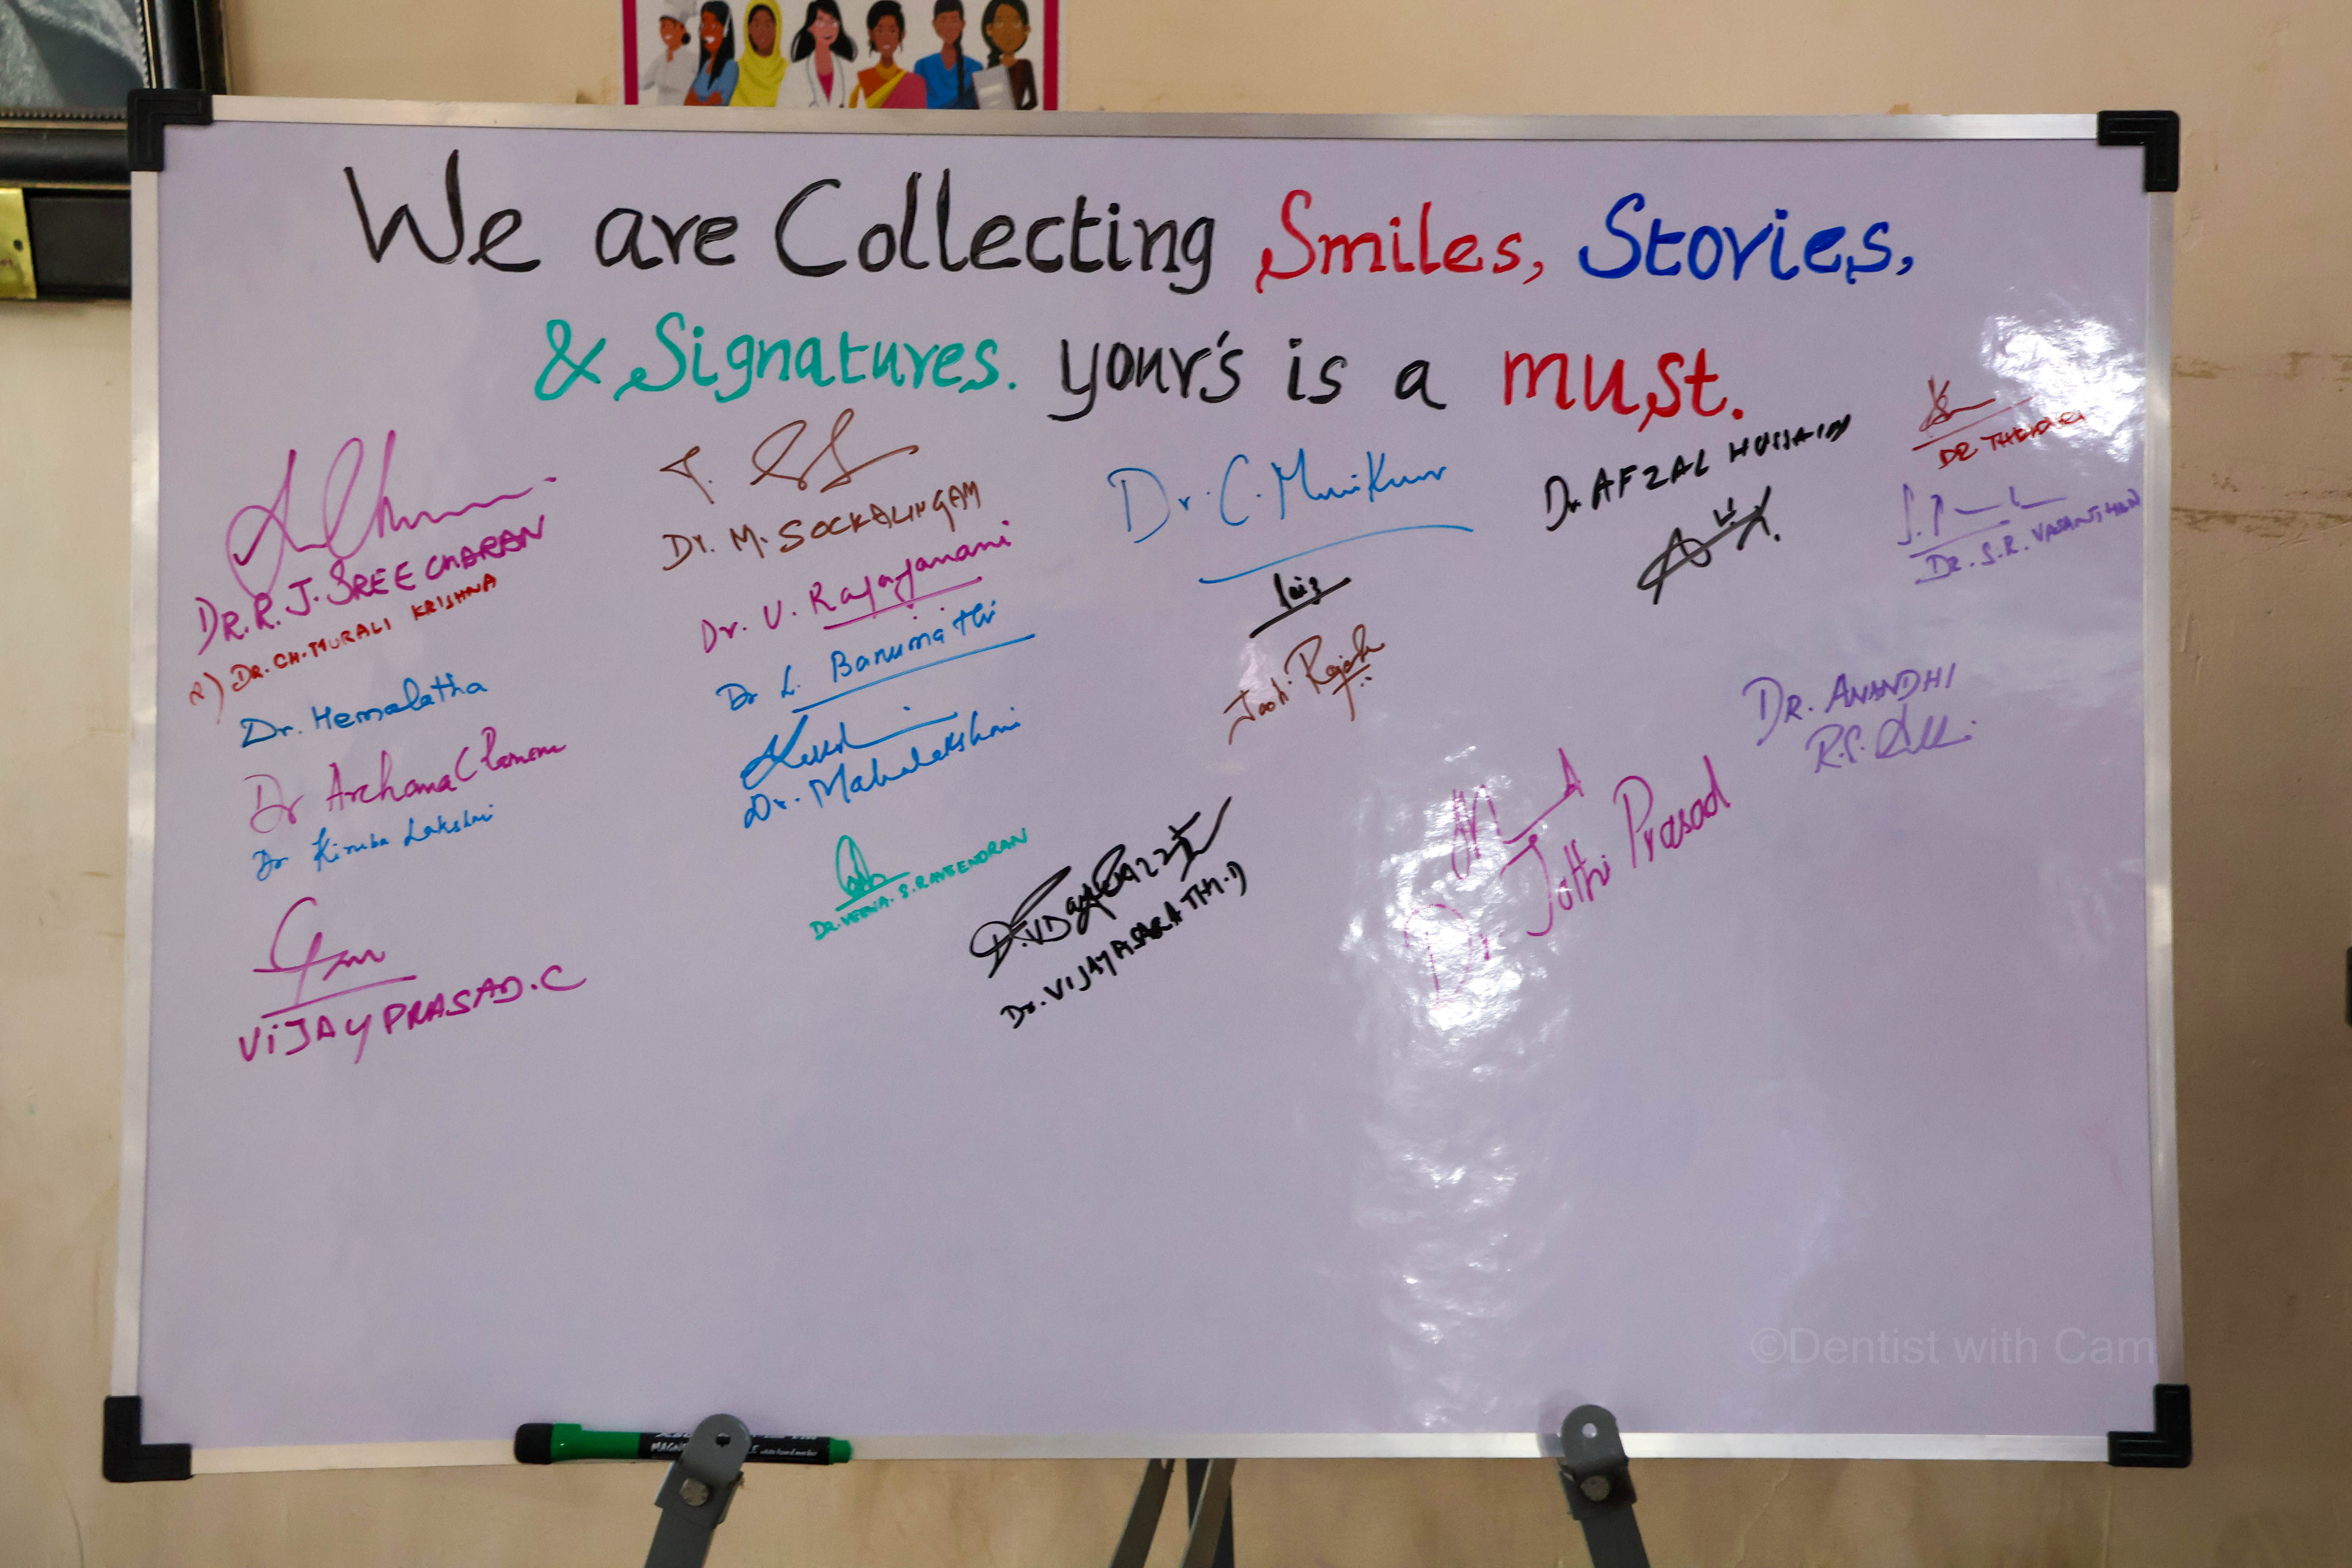 We are Collecting Smiles, Stories,
& Signatures. your's is a must.
DR. R. J. SREE CHARAN
2) DR. CH. MURALI KRISHNA
Dr. Hemalatha
Dr Archana
Dr Kiruba Lakshmi
VIJAY PRASAD. C
Dr. M. SOCKALINGAM
Dr. V. Rajajanani
Dr L. Banumathi
Dr. Mahalakshmi
DR. VEENA. S. RAVEENDRAN
Dr. C.
Dr. VIJAYASARATHI. D
Dr. AFZAL HUSSAIN
Dr. Jothi Prasad
DR
DR. S.R. VASANTHAN
DR. ANANDHI
©Dentist with Cam